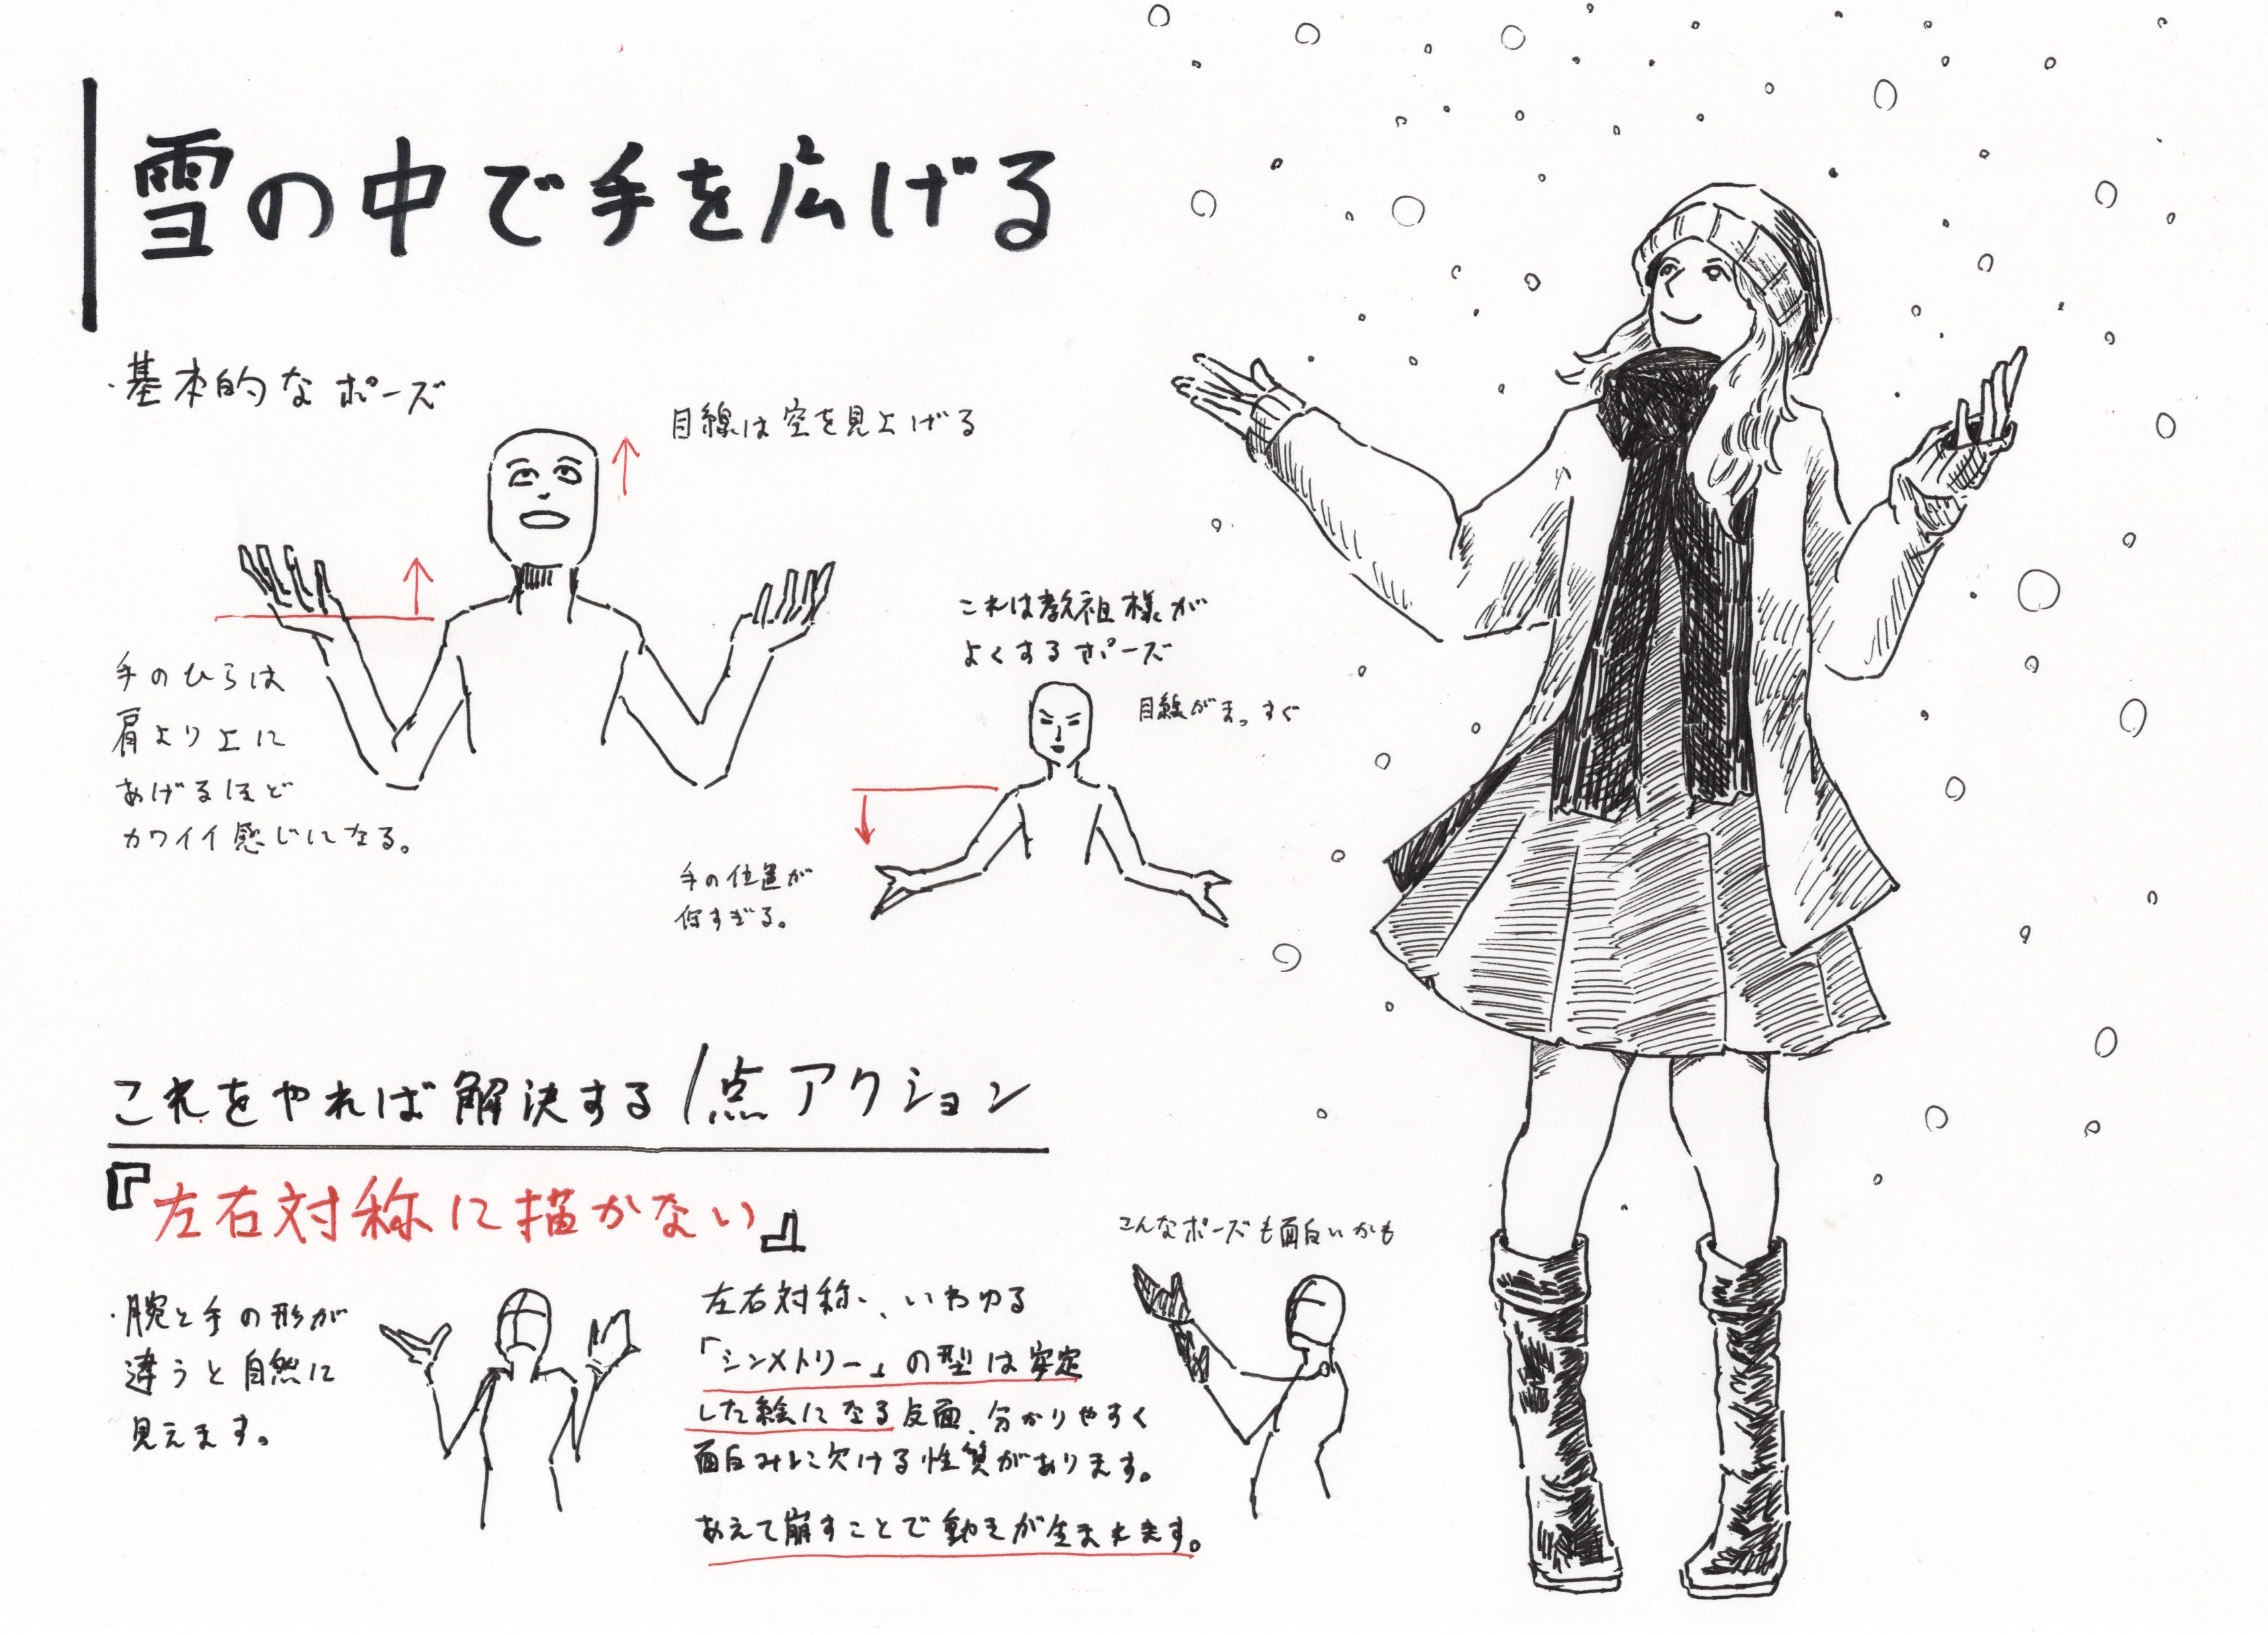 雪の中で手を広げる
・基本的なポーズ
目線は空を見上げる
手のひらは
肩より上に
あげるほど
カワイイ感じになる。
これは教祖様が
よくするポーズ
目線がまっすぐ
手の位置が
低すぎる。
これをやれば解決する1点アクション
『左右対称に描かない』
・腕と手の形が
違うと自然に
見えます。
左右対称、いわゆる
「シンメトリー」の型は安定
した絵になる反面、分かりやすく
面白みに欠ける性質があります。
あえて崩すことで動きが生まれます。
こんなポーズも面白いかも